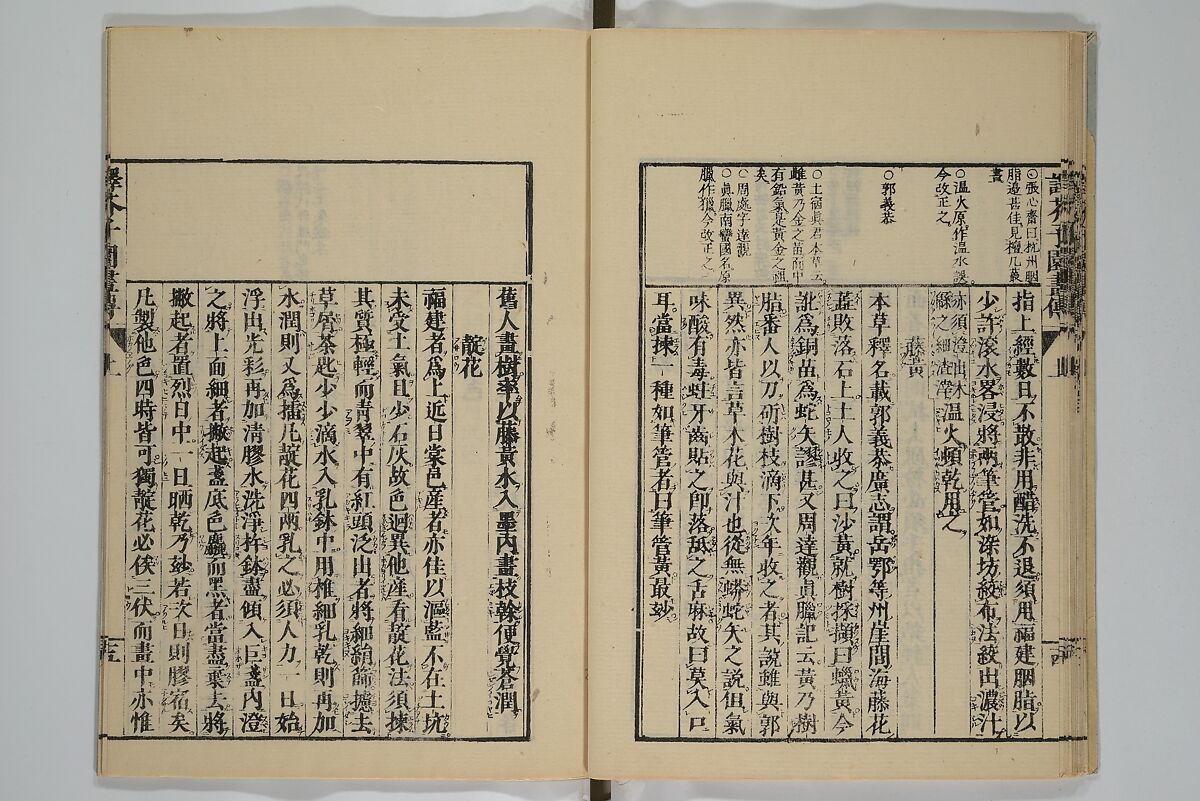 ○張心齋曰杭州胭
脂邊甚佳見檀几藂
書
○溫火原作溫水誤
今改正之
○郭義恭
○土宿眞君本草云
雌黃乃金之苗而中
有鉛氣是黃金之祖
矣
○周處字達觀
○眞臘南蠻國名原
臘作獵今改正之
指上經數日不散非用醋洗不退須用福建胭脂以
少許滾水畧浸將兩筆管如染坊絞布法絞出濃汁
亦須澄出木
綿之細渣滓
溫火頓乾用之
藤黃
本草釋名載郭義恭廣志謂岳鄂等州崖間海藤花
蕋敗落石上土人收之曰沙黃就樹採摘曰蠟黃今
訛爲銅苗爲蛇矢謬甚又周達觀眞臘記云黃乃樹
脂番人以刀斫樹枝滴下次年收之者其說雖與郭
異然亦皆言草木花與汁也從無蟒蛇矢之說但氣
味酸有毒蛀牙齒貼之卽落舐之舌麻故曰莫入口
耳當揀一種如筆管者曰筆管黃最妙
舊人畫樹率以藤黃水入墨內畫枝榦便覺蒼潤
靛花
福建者爲上近日棠邑產者亦佳以漚藍不在土坑
未受土氣且少石灰故色迥異他產看靛花法須揀
其質極輕而靑翠中有紅頭泛出者將細絹篩摅去
草屑茶匙少少滴水入乳鉢中用椎細乳乾則再加
水潤則又爲擂凡靛花四兩乳之必須人力一日始
浮出光彩再加淸膠水洗淨杵鉢盡傾入巨盞內澄
之將上面細者撇起盞底色麤而黑者當盡棄去將
撇起者置烈日中一日晒乾乃妙若次日則膠宿矣
凡製他色四時皆可獨靛花必俟三伏而畫中亦惟